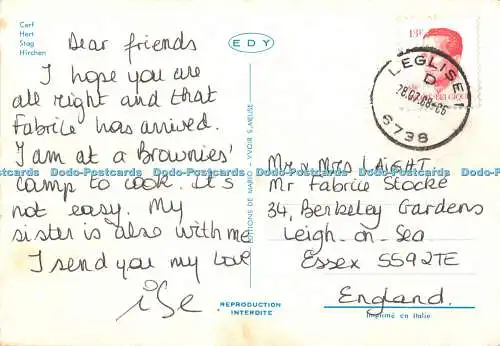 Cerf
Hert
Stag
Hirchen
EDY
Dear friends
I hope you are
all right and that
Fabrice has arrived.
I am at a Brownies'
camp to cook. It's
not easy. My
sister is also with me
I send you my love
EDITIONS DE MARIO - YVOIR S/MEUSE
REPRODUCTION
INTERDITE
13F
BELGIQUE
LEGLISE
D
28.07.88-06
6738
Mr x Mrs LAIGHT
Mr Fabrice Stocké
34, Berkeley Gardens
Leigh-on-Sea
Essex SS92TE
England.
Imprimé en Italie
Dodo-Postcards Dodo-Postcards Dodo-Postcards Dodo-Postcards Dodo-Postcards Dodo-Postcards